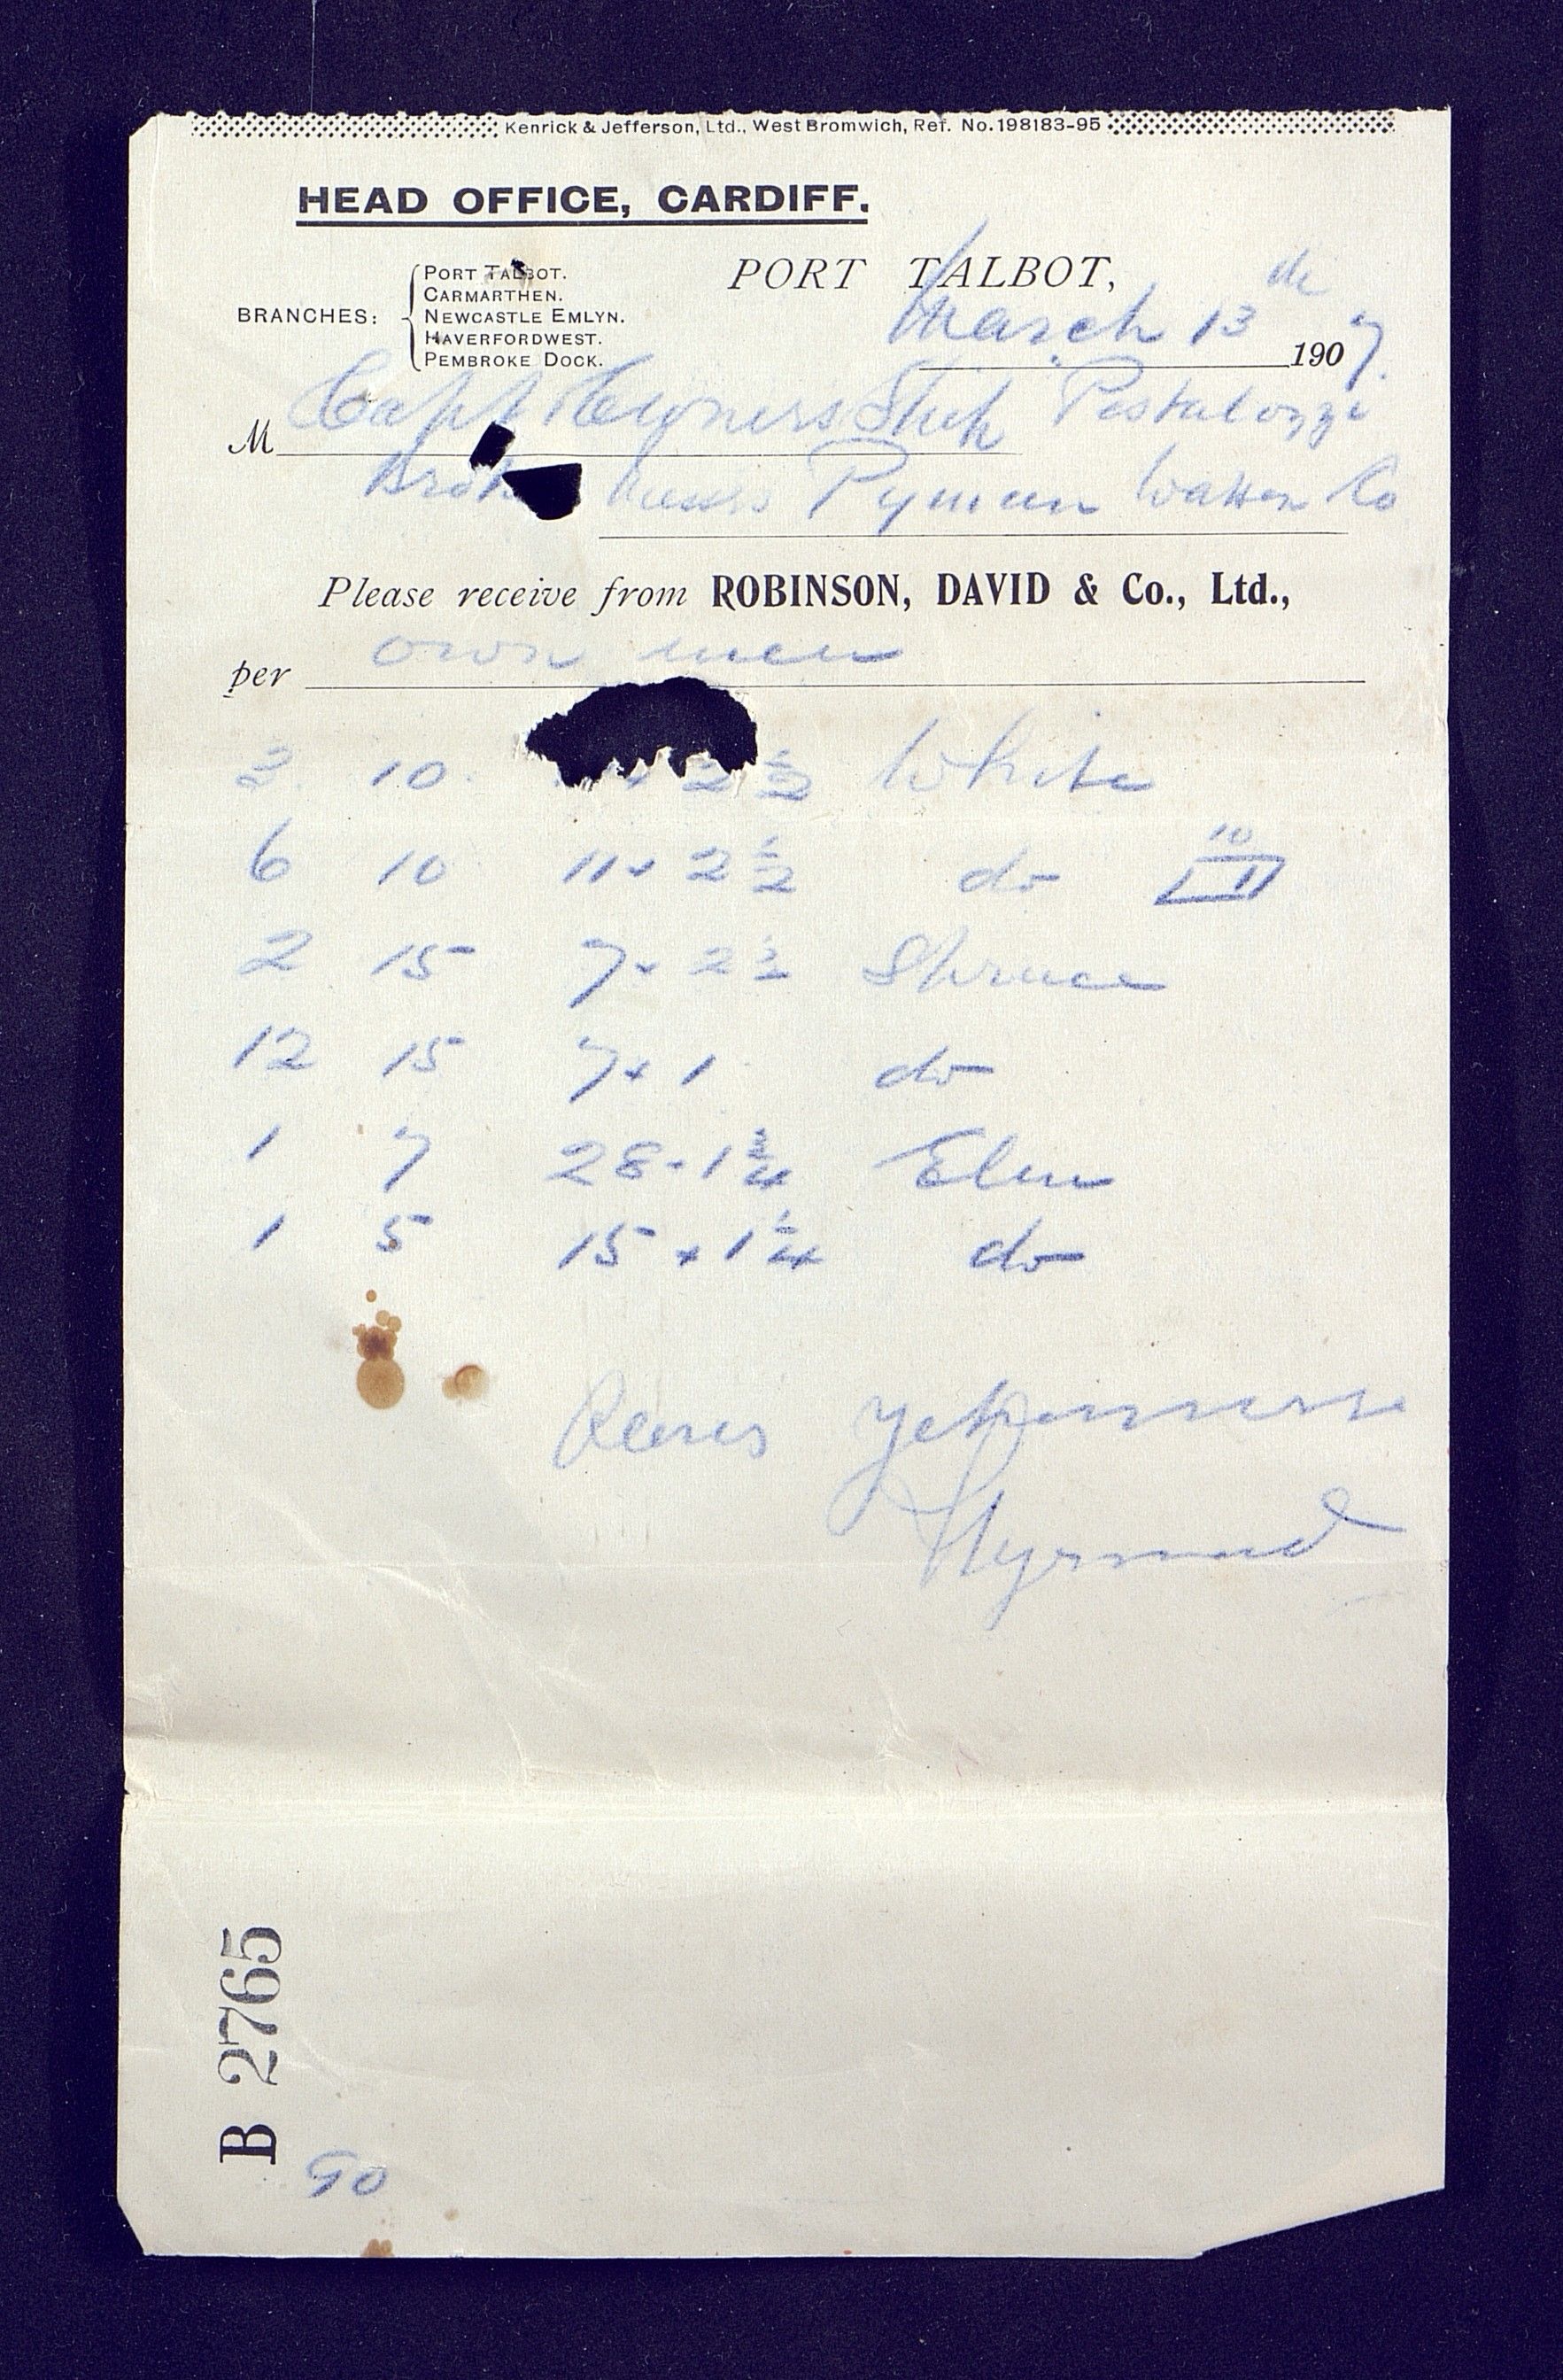 Kenrick & Jefferson, Ltd., West Bromwich, Ref. No. 198183-95
HEAD OFFICE, CARDIFF.
BRANCHES:
PORT TALBOT.
CARMARTHEN.
NEWCASTLE EMLYN.
HAVERFORDWEST.
PEMBROKE DOCK.
PORT TALBOT,
March 13 th 1907.
M Capt & Owners Ship Pestalozzi
Messrs Pyman Watson Co
Please receive from ROBINSON, DAVID & Co., Ltd.,
per own men
2 10 x 2 1/2 White
6 10 11 x 2 1/2 do 10
2 15 7 x 2 1/2 Spruce
12 15 7 x 1 do
1 7 28 - 1 3/4 Elm
1 5 15 x 1 1/4 do
B 2765
90